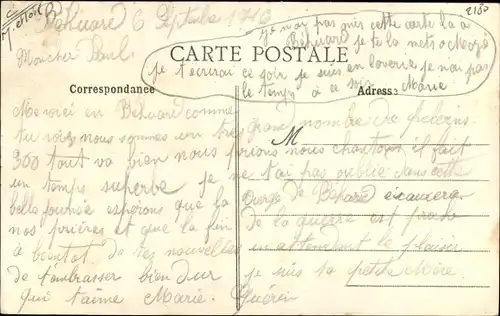 2180
Behuard 6 Septembre 1916
Mon cher Paul
je n'ai pas mis cette carte la a
Béhuard je te la mets a
je t'ecrirai ce soir je suis en je n'ai pas
le temps a ce soir Marie
CARTE POSTALE
Correspondance
Adresse
M
Me voici en Béhuard comme
tu vois nous sommes un très grand nombre de pelerins
300 tout va bien nous prions nous chantons il fait
un temps superbe je ne t'ai pas oublié dans cette
belle journée esperons que la Vierge de Behuard
nos prières et que la fin de la guerre est
a bientot de tes nouvelles en attendant le plaisir
de t'embrasser bien dur je suis ta petite Mère
qui t'aime Marie Guérin